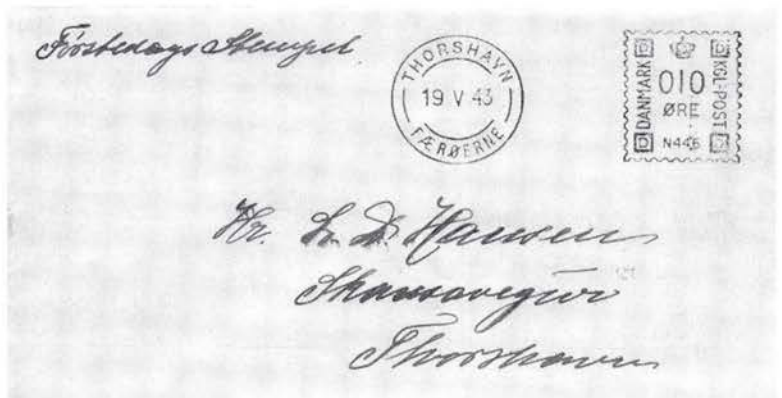 Förstedags Stempel
THORSHAVN
19 V 43
FÆRØERNE
DANMARK
010
ØRE
N446
KGL-POST
Hr. L. D. Hansen
Skansavegur
Thorshavn